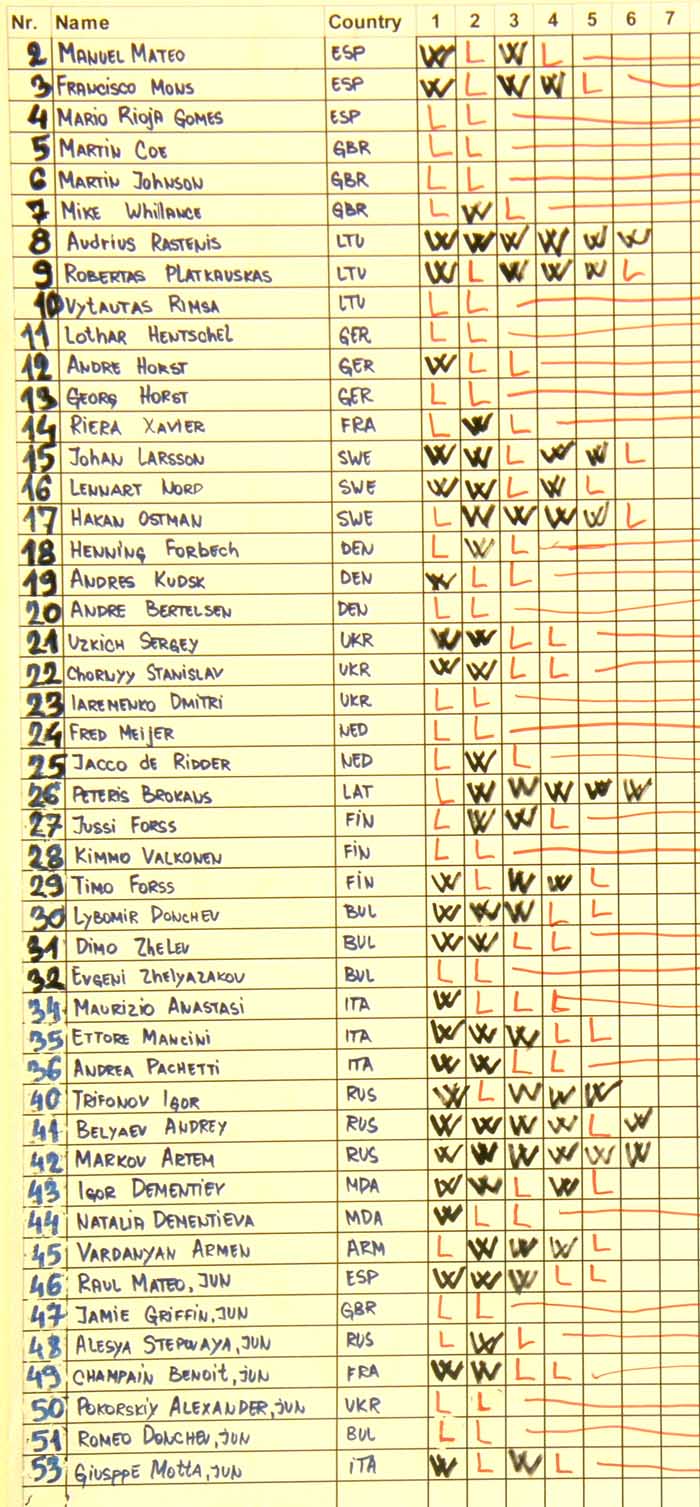 Nr. Name Country 1 2 3 4 5 6 7
2 MANUEL MATEO ESP W L W L
3 FRANCISCO MONS ESP W L W W L
4 MARIO RiojA GOMES ESP L L
5 MARTIN COE GBR L L
6 MARTIN JOHNSON GBR L L
7 MIKE WhillANCE GBR L W L
8 AUDRIUS RASTENIS LTU W W W W W W
9 ROBERTAS PLATKAUSKAS LTU W L W W W L
10 VYtAUTAS RIMSA LTU L L
11 LOthAR HENTSChEL GER L L
12 ANDRE HORST GER W L L
13 GEORG HORST GER L L
14 RIERA XAVIER FRA L W L
15 JOHAN LARSSON SWE W W L W W L
16 LENNART NORD SWE W W L W L
17 HAKAN OSTMAN SWE L W W W W L
18 HENNING FORBECH DEN L W L
19 ANDRES KUDSK DEN W L L
20 ANDRE BERTELSEN DEN L L
21 UZKICH SERGEY UKR W W L L
22 CHORNYY STANISLAV UKR W W L L
23 IAREMENKO DMITRI UKR L L
24 FRED MEIJER NED L L
25 JACCO de RIDDER NED L W L
26 PETERIS BROKANS LAT L W W W W W
27 JUSSI FORSS FIN L W W L
28 KIMMO VALKONEN FIN L L
29 TIMO FORSS FIN W L W W L
30 LYBOMIR DONCHEV BUL W W W L L
31 DIMO ZHELEV BUL W W L L
32 EVGENI ZHELYAZAKOV BUL L L
34 MAURIZIO ANASTASI ITA W L L L
35 ETTORE MANCINI ITA W W W L L
36 ANDREA PACHETTI ITA W W L L
40 TRIFONOV IGOR RUS W L W W W
41 BELYAEV ANDREY RUS W W W W L W
42 MARKOV ARTEM RUS W W W W W W
43 IGOR DEMENTIEV MDA W W L W L
44 NATALIA DEMENTIEVA MDA W L L
45 VARDANYAN ARMEN ARM L W W W L
46 RAUL MATEO, JUN ESP W W W L L
47 JAMIE GRIFFIN, JUN GBR L L
48 ALESYA STEPWAYA, JUN RUS L W L
49 CHAMPAIN BENOIT, JUN FRA W W L L
50 POKORSKIY ALEXANDER, JUN UKR L L
51 ROMEO DONCHEV, JUN BUL L L
53 GIUSPPE MOTTA, JUN ITA W L W L